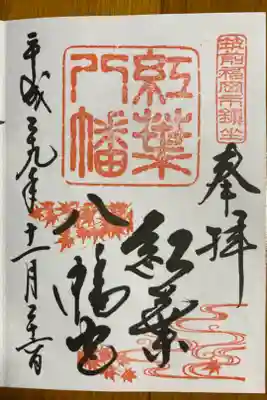 筑前福岡市鎮坐
奉拝
紅葉
八幡
紅葉
八幡宮
平成二十九年十一月二十六日